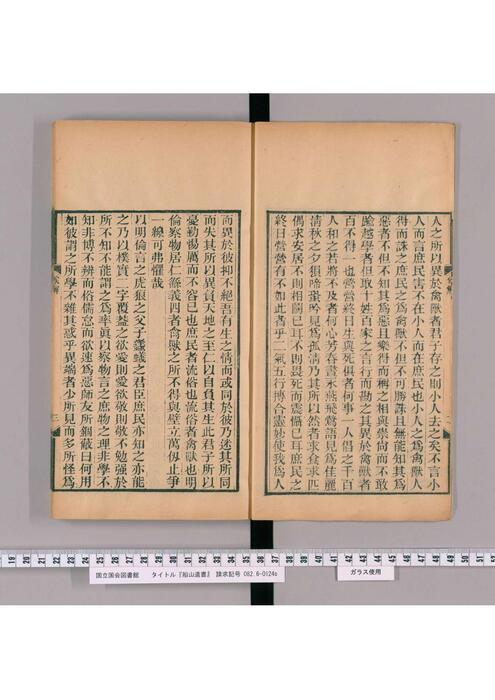 人之所以異於禽獸者君子存之則小人去之矣不言小
人而言庶民害不在小人而在庶民也小人之爲禽獸人
得而誅之庶民之爲禽獸不但不可勝誅且無能知其爲
惡者不但不知其爲惡且樂得而稱之相與崇尚而不敢
踰越學者但取十姓百家之言行而勘之其異於禽獸者
百不得一也營營終日生與死俱者何事一人倡之千百
人和之若將不及者何心芳春晝永燕飛鶯語見爲佳麗
清秋之夕猿啼蛩吟見爲孤清乃其所以然者求食求匹
偶求安居不則相鬭已耳不則畏死而震懾已耳庶民之
終日營營有不如此者乎二氣五行摶合靈妙使我爲人
而異於彼抑不絕吾有生之情而或同於彼乃迷其所同
而失其所以異負天地之至仁以自負其生此君子所以
憂勤惕厲而不容已也庶民者流俗也流俗者禽獸也明
倫察物居仁由義四者禽獸之所不得與壁立萬仞止爭
一線可弗懼哉
以明倫言之虎狼之父子螻蟻之君臣庶民亦知之亦能
之乃以樸實二字覆蓋之欲愛則愛欲敬則敬不勉強於
所不知不能謂之爲率眞以察物言之庶物之理非學不
知非博不辨而俗儒怠而欲速爲惡師友所錮蔽曰何用
如彼謂之所學不雜其惑乎異端者少所見而多所怪爲
19 20 21 22 23 24 25 26 27 28 29 30 31 32 33 34 35 36 37 38 39 40 41 42 43 44 45 46 47 48 49 50 51 52
国立国会図書館 タイトル『船山遺書』 請求記号 082.6-O124o
ガラス使用